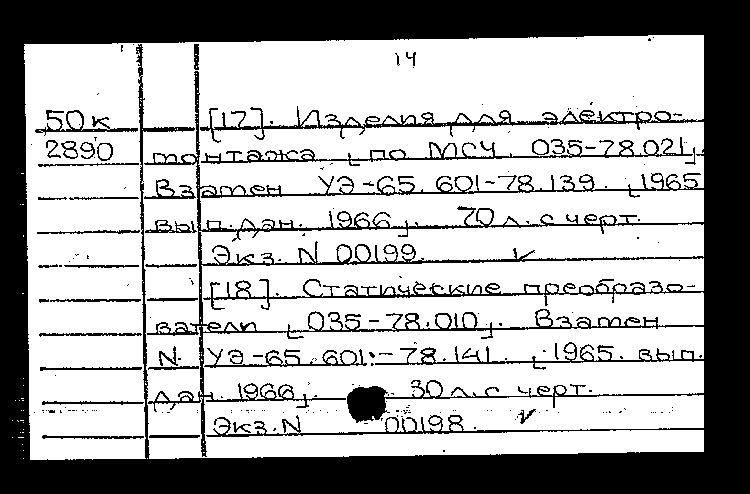 14
50к [17]. Изделия для электро-
2890 монтажа [по МСЧ 035-78.021].
Взамен УЭ-65.601-78.139. [1965
вып. дан. 1966]. 70 л. с черт.
Экз. N 00199 ✓
[18]. Статические преобразо-
ватели [035-78.010]. Взамен
N. УЭ-65.601-78.141. [1965. вып.
дан. 1966]. 30 л. с черт.
Экз. N 00198. ✓